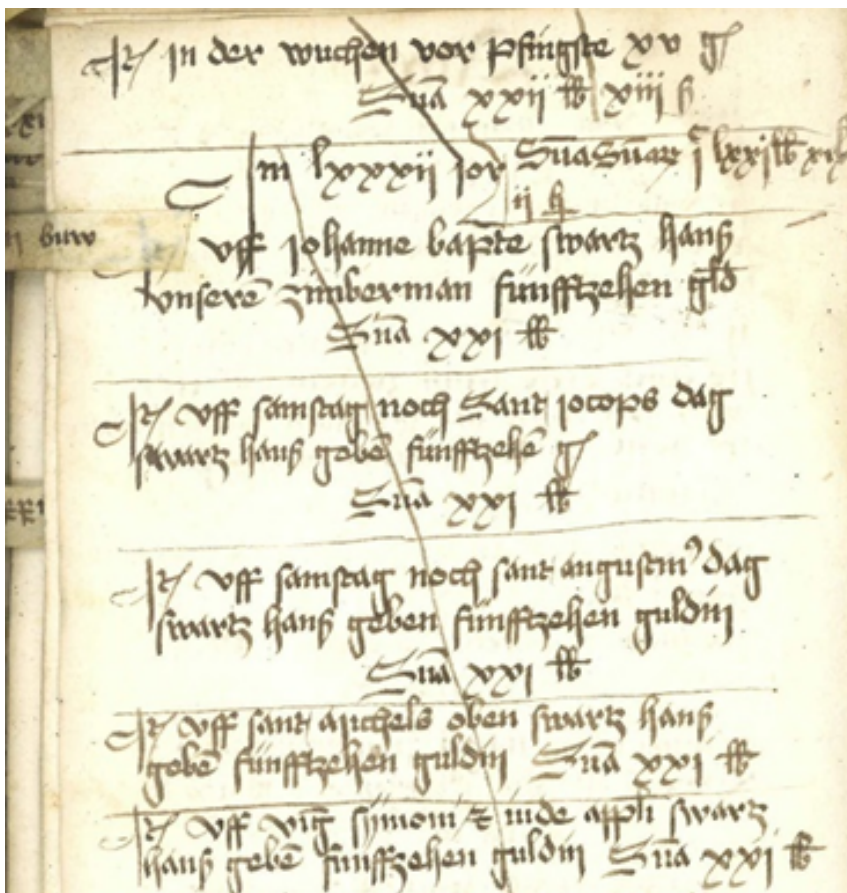 It in der wuchen vor pfingste xv g
Sūa xxii lb xiii ß
Im lxxxii jor Sūa Sūar
ii
buw
uff johanne bapte swartz hanß
unserē zimberman fünfftzehen gld
Sūa xxi lb
It uff samstag noch Sant jocops dag
swartz hanß gebē fünfftzehē g
Sūa xxi lb
It uff samstag noch sant augustin dag
swartz hanß geben fünfftzehen guldin
Sūa xxi lb
It uff sant michels oben swartz hanß
gebē fünfftzehen guldin Sūa xxi lb
It uff vig symoni z iude appli swartz
hanß gebē fünffzehen guldin Sūa xxi lb